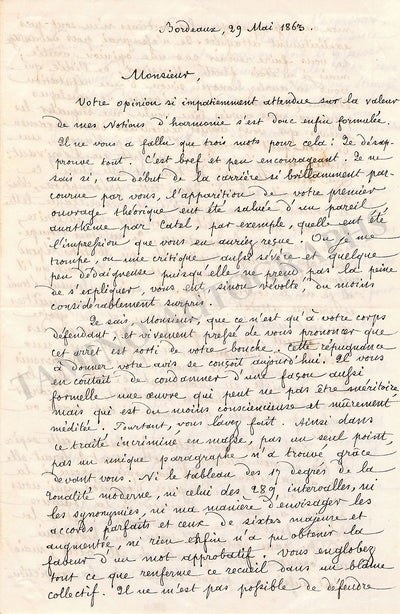 Bordeaux, 29 Mai 1863.
Monsieur,
Votre opinion si impatiemment attendue sur la valeur
de mes Notions d'harmonie s'est donc enfin formulée.
Il ne vous a fallu que trois mots pour cela: Je désap-
prouve tout. C'est bref et peu encourageant. Je ne
sais si, au début de la carrière si brillamment par-
courue par vous, l'apparition de votre premier
ouvrage théorique eut été saluée d'un pareil
anathème par Catel, par exemple, quelle eut été
l'impression que vous en auriez reçue. Ou je me
trompe, ou une critique aussi sévère et quelque
peu dédaigneuse puisqu'elle ne prend pas la peine
de s'expliquer, vous eut, sinon révolté, du moins
considérablement surpris.
Je sais, Monsieur, que ce n'est qu'à votre corps
défendant, et vivement pressé de vous prononcer que
cet arrêt est sorti de votre bouche. Cette répugnance
à donner votre avis se conçoit aujourd'hui. Il vous
en coutait de condamner d'une façon aussi
formelle une œuvre qui peut ne pas être méritoire,
mais qui est du moins consciencieuse et mûrement
méditée. Pourtant, vous l'avez fait. Ainsi dans
ce traité incriminé en masse, pas un seul point,
pas un unique paragraphe n'a trouvé grâce
devant vous. Ni le tableau des 17 degrés de la
tonalité moderne, ni celui des 289 intervalles, ni
les synonymies, ni ma manière d'envisager les
accords parfaits et ceux de sixtes majeure et
augmentée, ni rien enfin n'a pu obtenir la
faveur d'un mot approbatif. Vous englobez
tout ce que renferme ce recueil dans un blâme
collectif. Il ne m'est pas possible de défendre